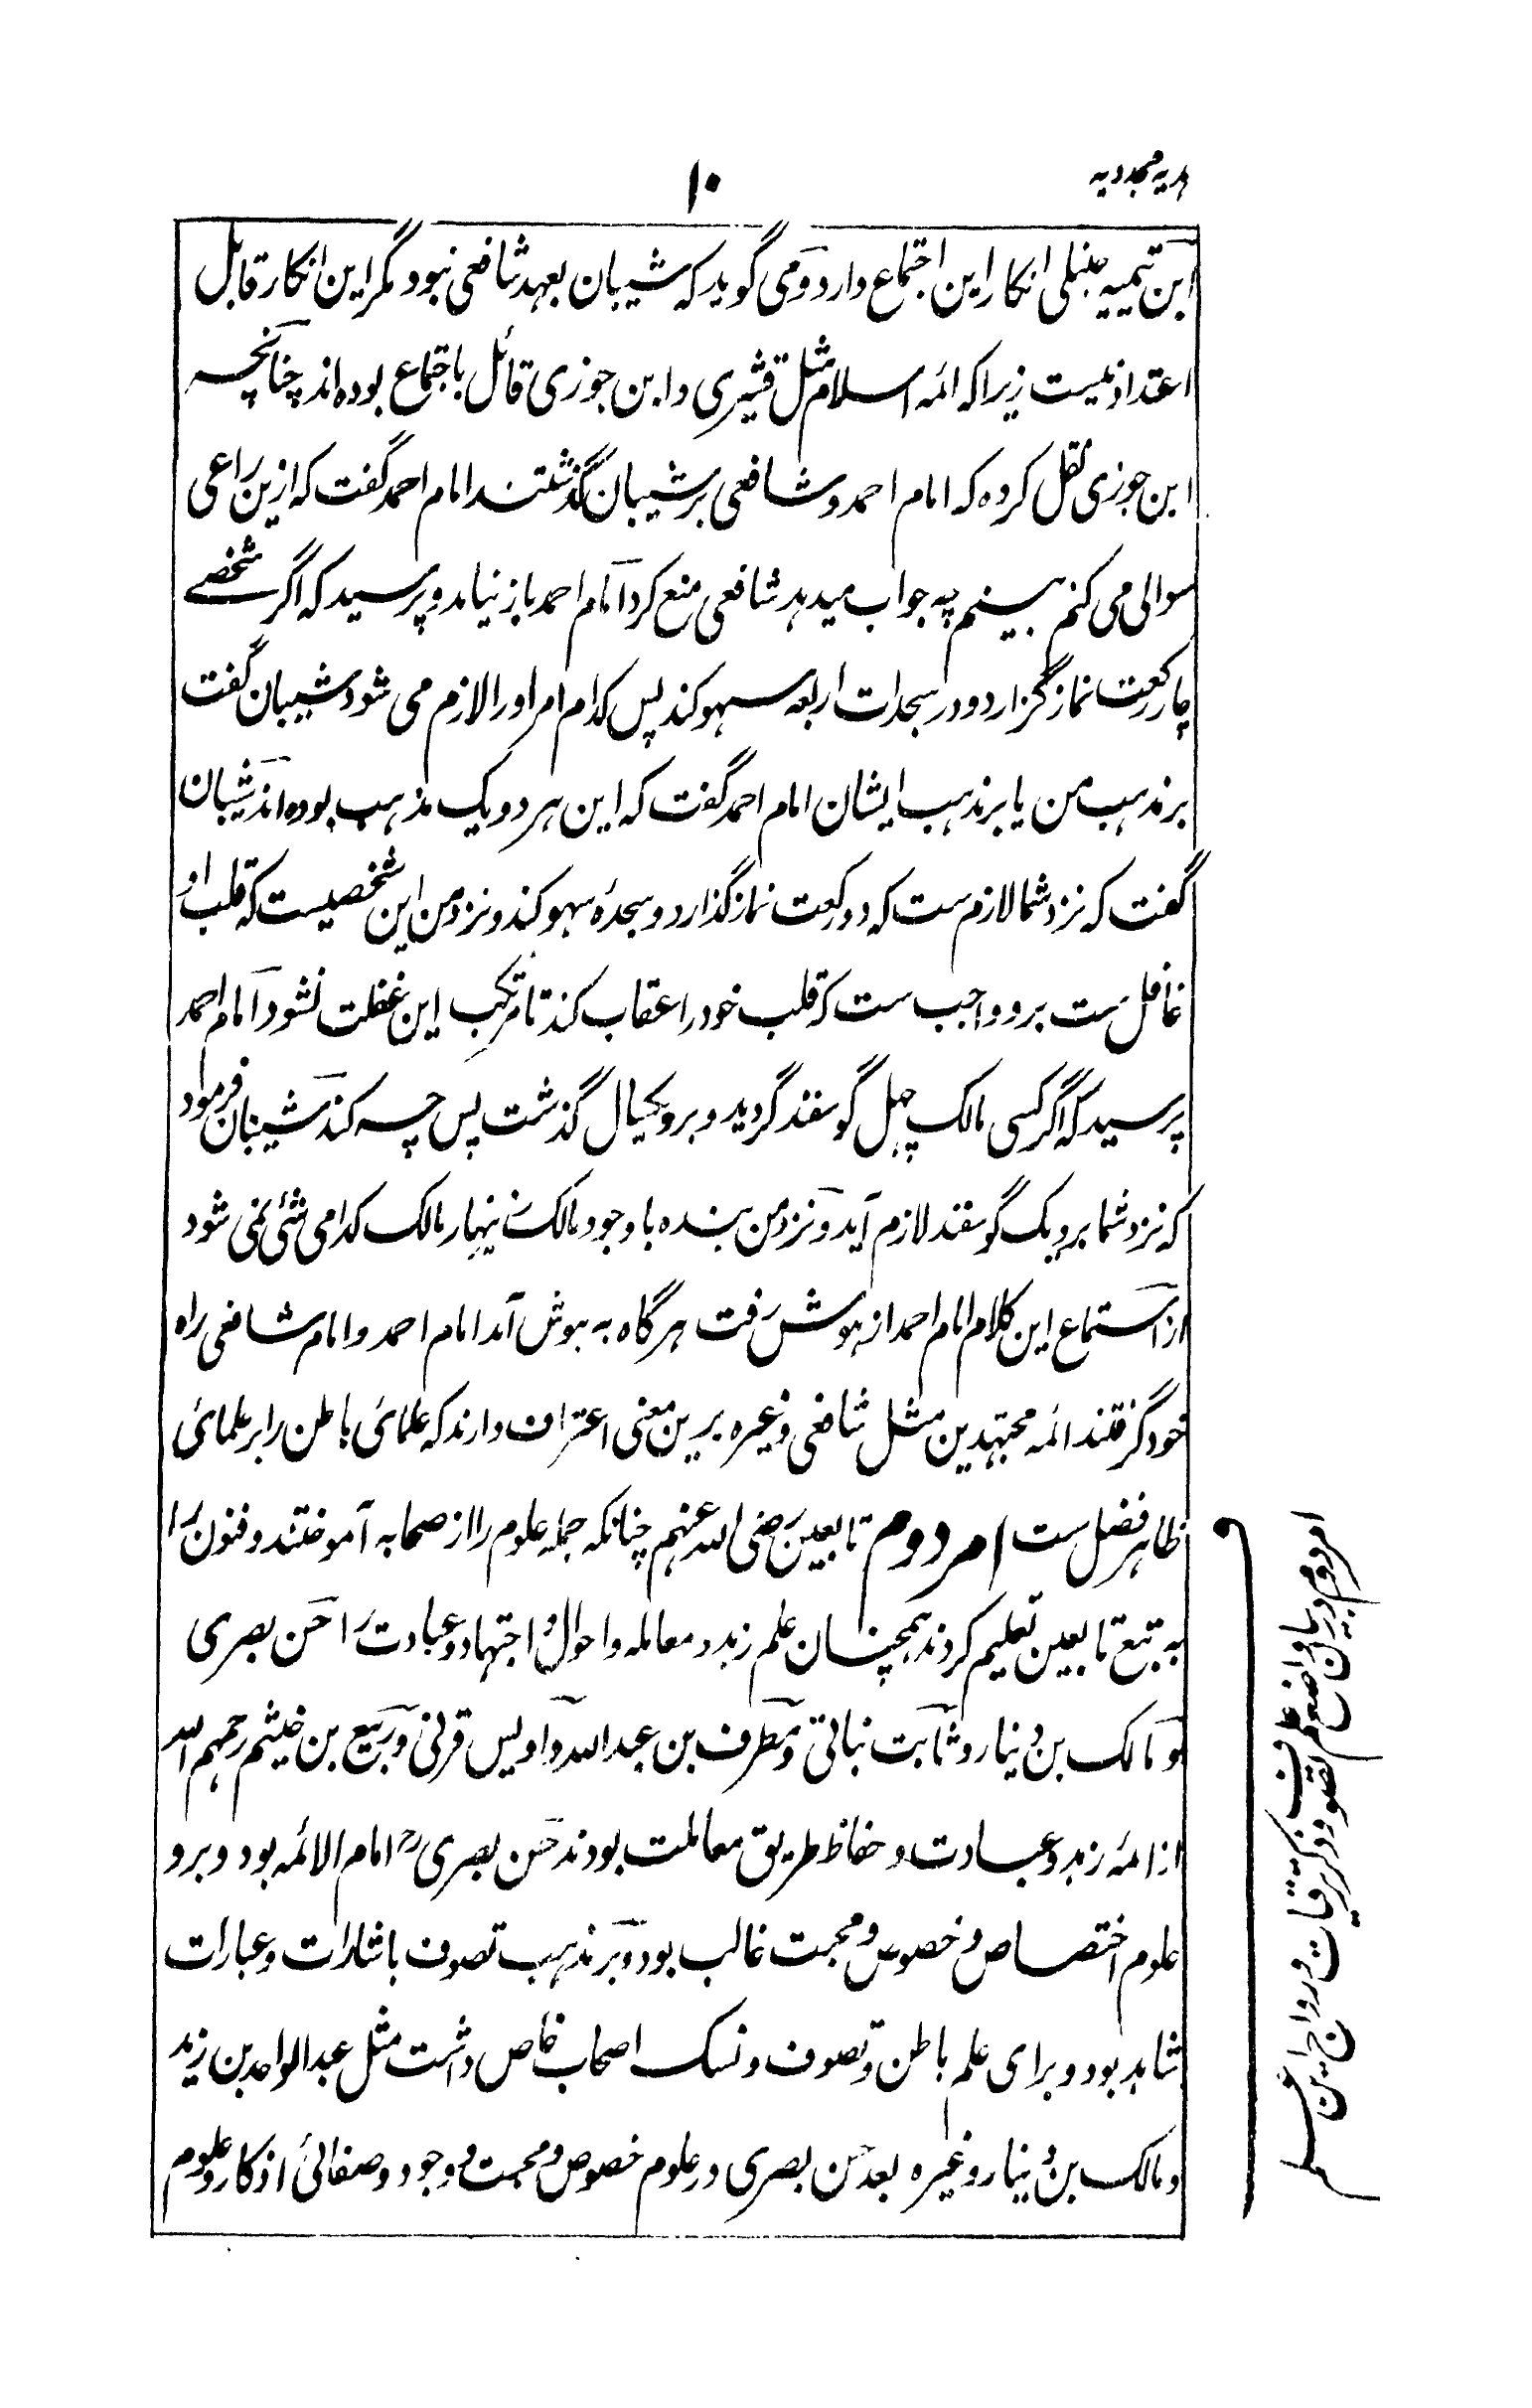 هدیه مجددیه
۱۰
ابن تیمیه حنبلی انکار این اجتماع دارد و می گوید که شیبان بعهد شافعی نبود مگر این انکار قابل
اعتداد نیست زیرا که ائمه اسلام مثل قشیری و ابن جوزی قائل باجتماع بوده اند چنانچه
ابن جوزی نقل کرده که امام احمد و شافعی بر شیبان گذشتند امام احمد گفت که ازین راعی
سوالی می کنم ببینم چه جواب میدهد شافعی منع کرد امام احمد باز نیامد و پرسید که اگر شخصے
چار رکعت نماز گزارد و در سجدات اربعه سهو کند پس کدام امر او را لازم می شود شیبان گفت
بر مذهب من یا بر مذهب ایشان امام احمد گفت که این هر دو یک مذهب بوده اند شیبان
گفت که نزد شما لازم ست که دو رکعت نماز گذارد و سجدۀ سهو کند و نزد من این شخصیست که قلب او
غافل ست برو واجب ست که قلب خود را عقاب کند تا مرتکب این غفلت نشود امام احمد
پرسید که اگر کسی مالک چهل گوسفند گردید و برو یکسال گذشت پس چه کند شیبان فرمود
که نزد شما برو یک گوسفند لازم آید و نزد من بنده با وجود مالک زینهار مالک کدامی شئی نمی شود
از استماع این کلام امام احمد از هوش رفت هر گاه به هوش آمد امام احمد و امام شافعی راه
خود گرفتند ائمه مجتهدین مثل شافعی وغیره برین معنی اعتراف دارند که علمائ باطن را بر علمائ
ظاهر فضل ست امر دوم تابعین رضی الله عنهم چنانکه جمله علوم را از صحابه آموختند و فنون را
به تبع تابعین تعلیم کردند همچنان علم زهد و معامله و احوال و اجتهاد و عبادت را حسن بصری
و مالک بن دینار و ثابت نباتی و مطرف بن عبدالله و اویس قرنی و ربیع بن خیثم رحمهم الله
از ائمۀ زهد و عبادت و حفاظ طریق معاملت بودند حسن بصری رح امام الائمه بود و برو
علوم اختصاص و خصوص و محبت غالب بود و بر مذهب تصوف باشارات و عبارات
شاهد بود و برای علم باطن و تصوف و نسک اصحاب خاص داشت مثل عبدالواحد بن زید
و مالک بن دینار وغیره بعد حسن بصری در علوم خصوص و محبت و وجود و صفائی اذکار و علوم
امر دوم در بیان واضع علم تصوف
و ذکر ترقیات و رواج این علم